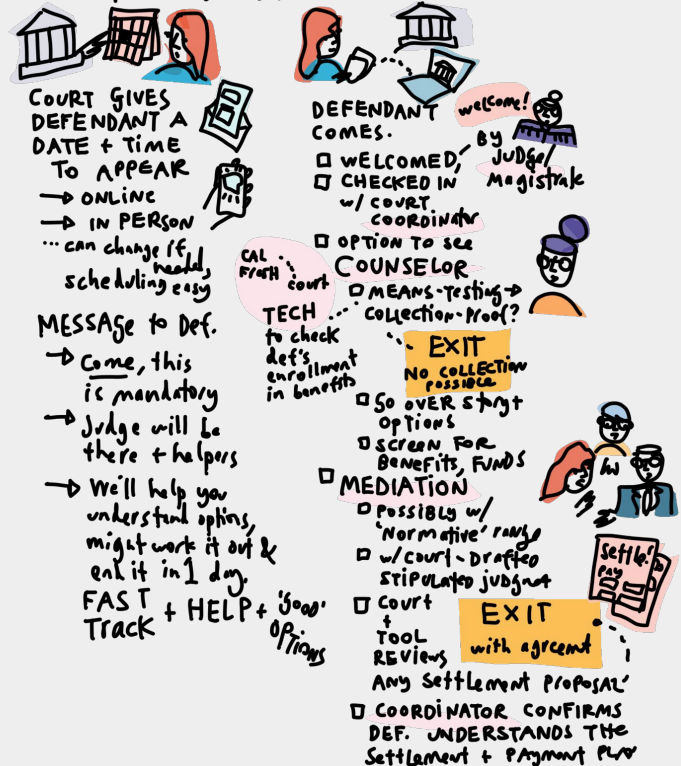 COURT GIVES
DEFENDANT A
DATE + TIME
TO APPEAR
→ ONLINE
→ IN PERSON
... can change if
needed,
scheduling easy
MESSAge to Def.
→ Come, this
is mandatory
→ Judge will be
there + helpers
→ We'll help you
understand options,
might work it out &
end it in 1 day.
FAST
Track + HELP + 'good'
OPTIONS
welcome!
DEFENDANT
COMES.
□ WELCOMED, BY JUDGE/
Magistrate
□ CHECKED IN
w/ COURT
COORDINATOR
□ OPTION TO SEE
COUNSELOR
□ MEANS-Testing →
COLLECTION-PROOF?
CAL
FRESH
court
TECH
to check
def's
enrollment
in benefits
EXIT
NO COLLECTION
POSSIBLE
□ GO OVER STORY +
OPTIONS
□ SCREEN FOR
BENEFITS, FUNDS
□ MEDIATION
□ POSSIBLY w/
'Normative' range
□ w/ COURT-DRAFTED
STIPULATED JUDGMNT
Settle!
PAY
□ COURT
+
TOOL
REVIEWS
ANY SETTLEMENT PROPOSAL
EXIT
with agreemt
□ COORDINATOR CONFIRMS
DEF. UNDERSTANDS THE
SETTLEMENT + PAYMENT PLAN